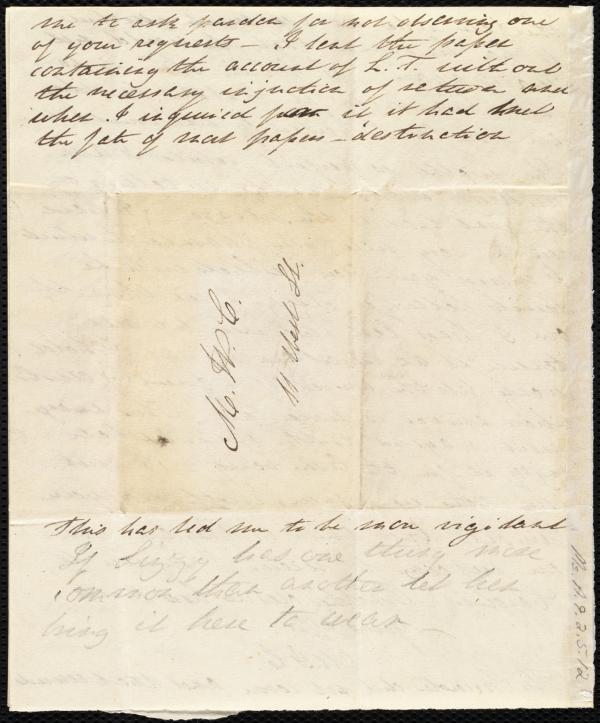 me to ask pardon for not observing one
of your requests – I lent the paper
containing the account of L. T. without
the necessary injunction of return and
when I inquired for it, it had met
the fate of most papers – destruction
M. W. C.
11 West St.
This has led me to be more vigilant
If Lizzy has one thing more
common than another let her
bring it here to wear –
Ms. A. 9. 2. 5. 12